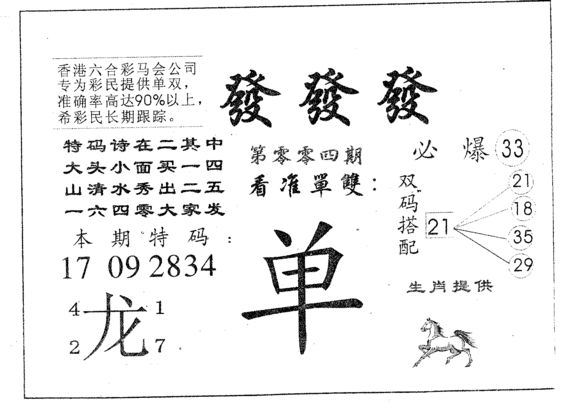 香港六合彩马会公司
专为彩民提供单双,
准确率高达90%以上,
希彩民长期跟踪。
發 發 發
特码诗在二其中
大头小面买一四
山清水秀出二五
一六四零大家发
第零零四期
看准單雙：
必 爆 33
双码搭配
21
21
18
35
29
本期特码：
17 09 28 34
单
生肖提供
4 龙 1
2 7